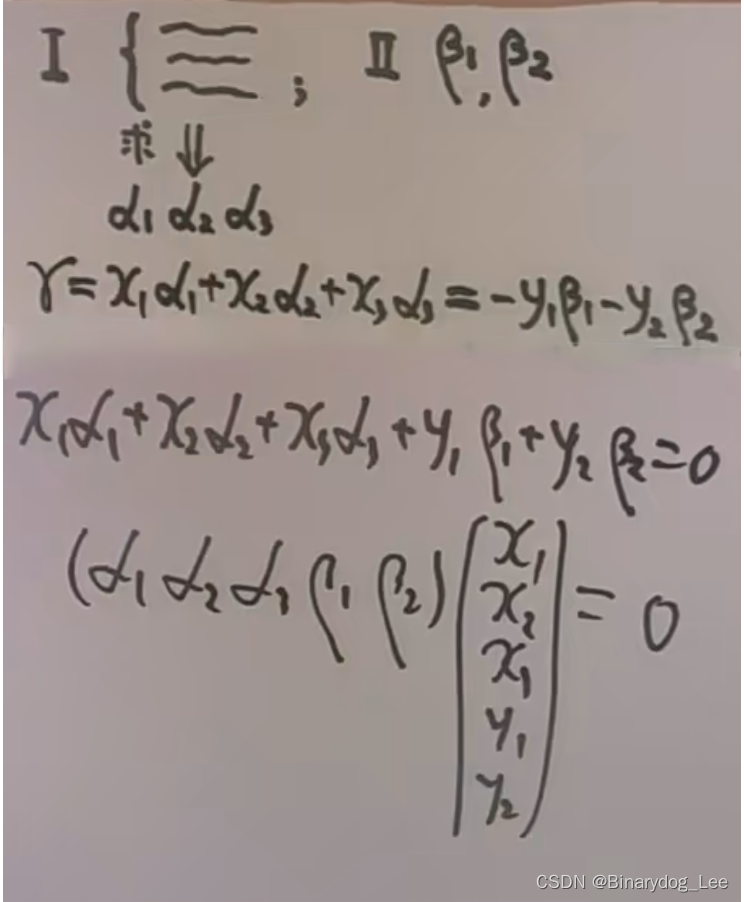 I { ; II β₁, β₂
求 ⇓
α₁ α₂ α₃
γ=x₁α₁+x₂α₂+x₃α₃=-y₁β₁-y₂β₂
x₁α₁+x₂α₂+x₃α₃+y₁β₁+y₂β₂=0
(α₁ α₂ α₃ β₁ β₂)(x₁ x₂ x₁ y₁ y₂)=0
CSDN @Binarydog_Lee